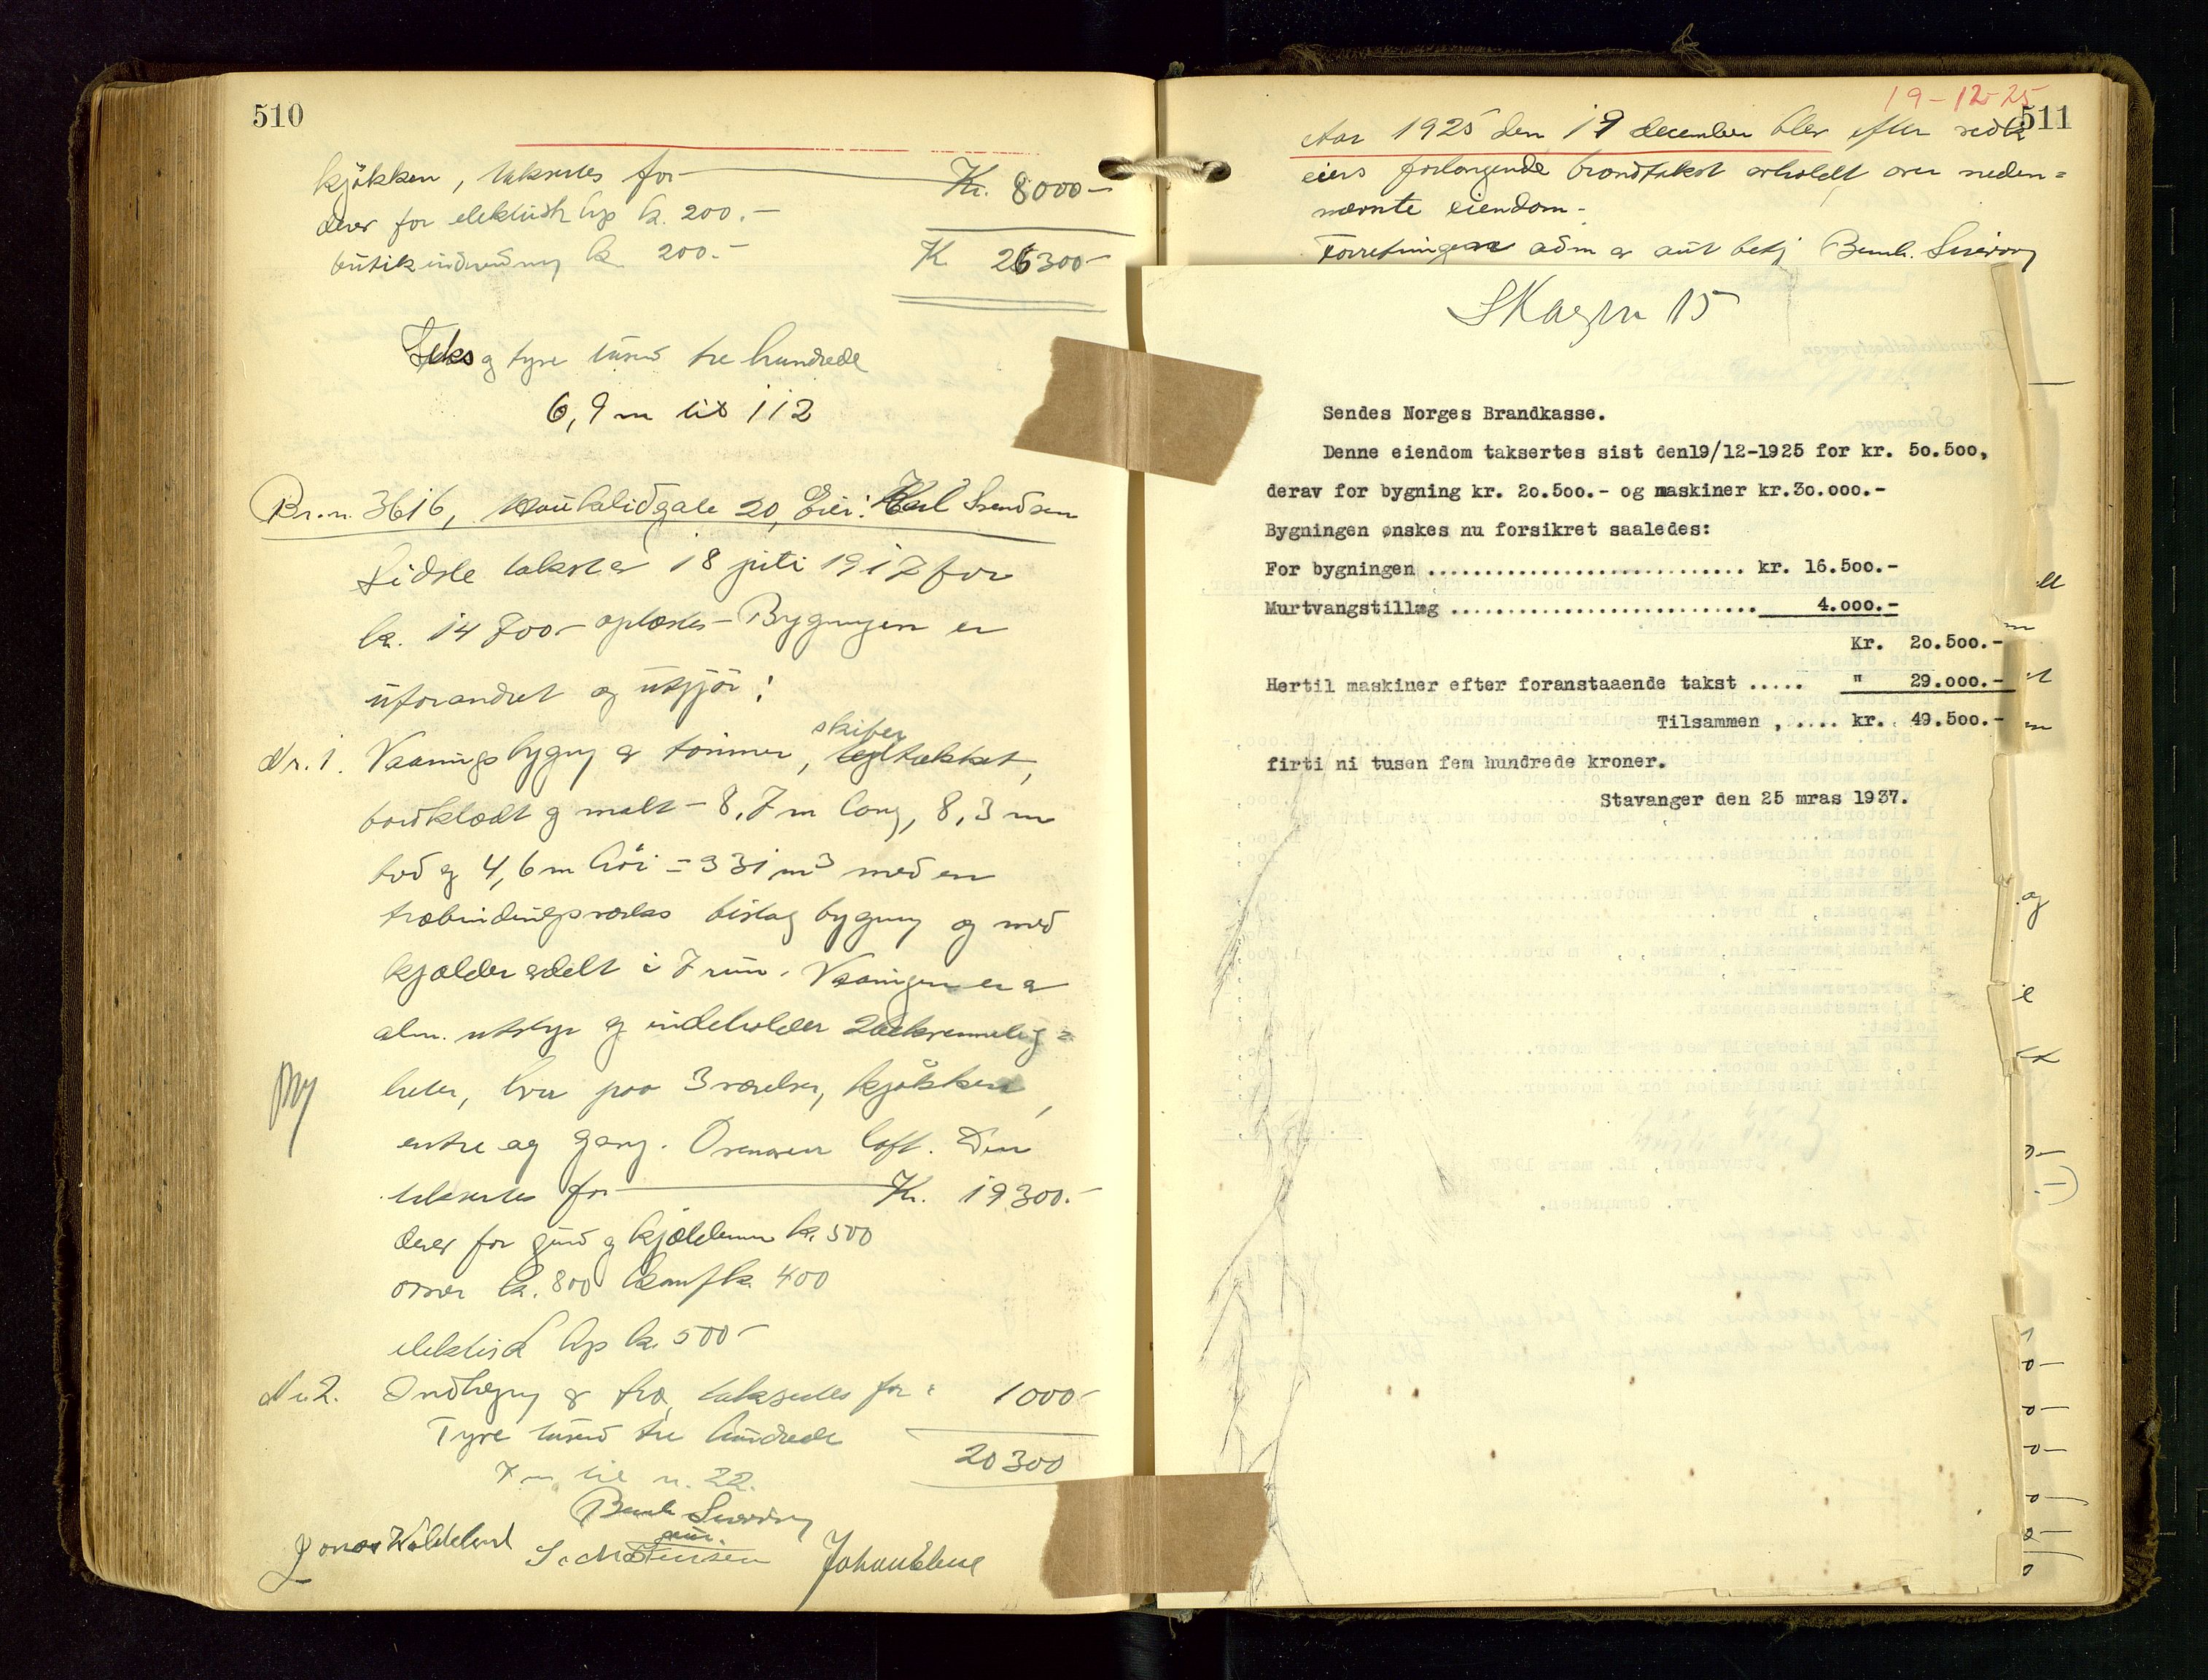 510
kjökken, takseres for Kr. 8000-
derav for elektrisk lys k. 200.-
butikindredning k. 200.- K 26300-
Seks og tyve tusend tre hundrede
6,9 m til 112
Br.n. 3616, Haukeligate 20, Eier: Karl Svendsen
Sidste takst er 18 juli 1917 for
k. 14700- oplæstes - Bygningen er
uforandret og utgjör:
skifer
Nr. 1. Vaaningsbygning av tömmer, tegltækket,
bordklædt og malt - 8,7 m lang, 8,3 m
bred og 4,6 m höi = 331 m³ med en
træbindingsverks bislag bygning og med
kjælder avdelt i 7 rum. Vaaningen er av
alm. utstyr og indeholder 2 bekvemmelig=
heter, hver paa 3 værelser, kjökken,
entre og gang. Ovenover loft. Den
takseres for Kr. 19300.-
derav for grund og kjældermur k. 500
ovner k. 800 komf k. 400
elektrisk lys k. 500-
Nr 2. Indhegning av træ, takseres for: 1000-
Tyve tusend tre hundrede
20300
7 m til n. 22.
Bernh Sivertsen
Jonas Kvileland
Johan Elene
19-12-25
511
Aar 1925 den 19 december blev efter vedk
eiers forlangende brandtakst avholdt over neden=
nævnte eiendom-
Forretningen adm av aut betj Bernh. Sivertsen
Skagen 15
Sendes Norges Brandkasse.
Denne eiendom taksertes sist den19/12-1925 for kr. 50.500,
derav for bygning kr. 20.500.- og maskiner kr.30.000.-
Bygningen ønskes nu forsikret saaledes:
For bygningen ............................ kr. 16.500.-
Murtvangstillæg ........................... 4.000.-
Kr. 20.500.-
Hertil maskiner efter foranstaaende takst ..... " 29.000.-
Tilsammen , .... kr. 49.500.-
firti ni tusen fem hundrede kroner.
Stavanger den 25 mras 1937.